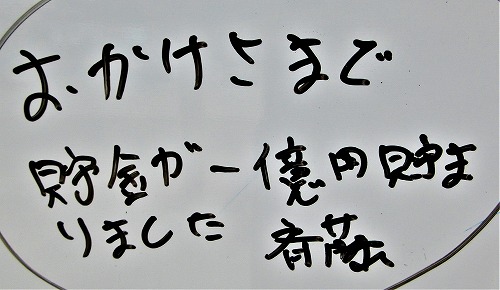 おかけさまで
貯金が一億円貯ま
りました 斉藤